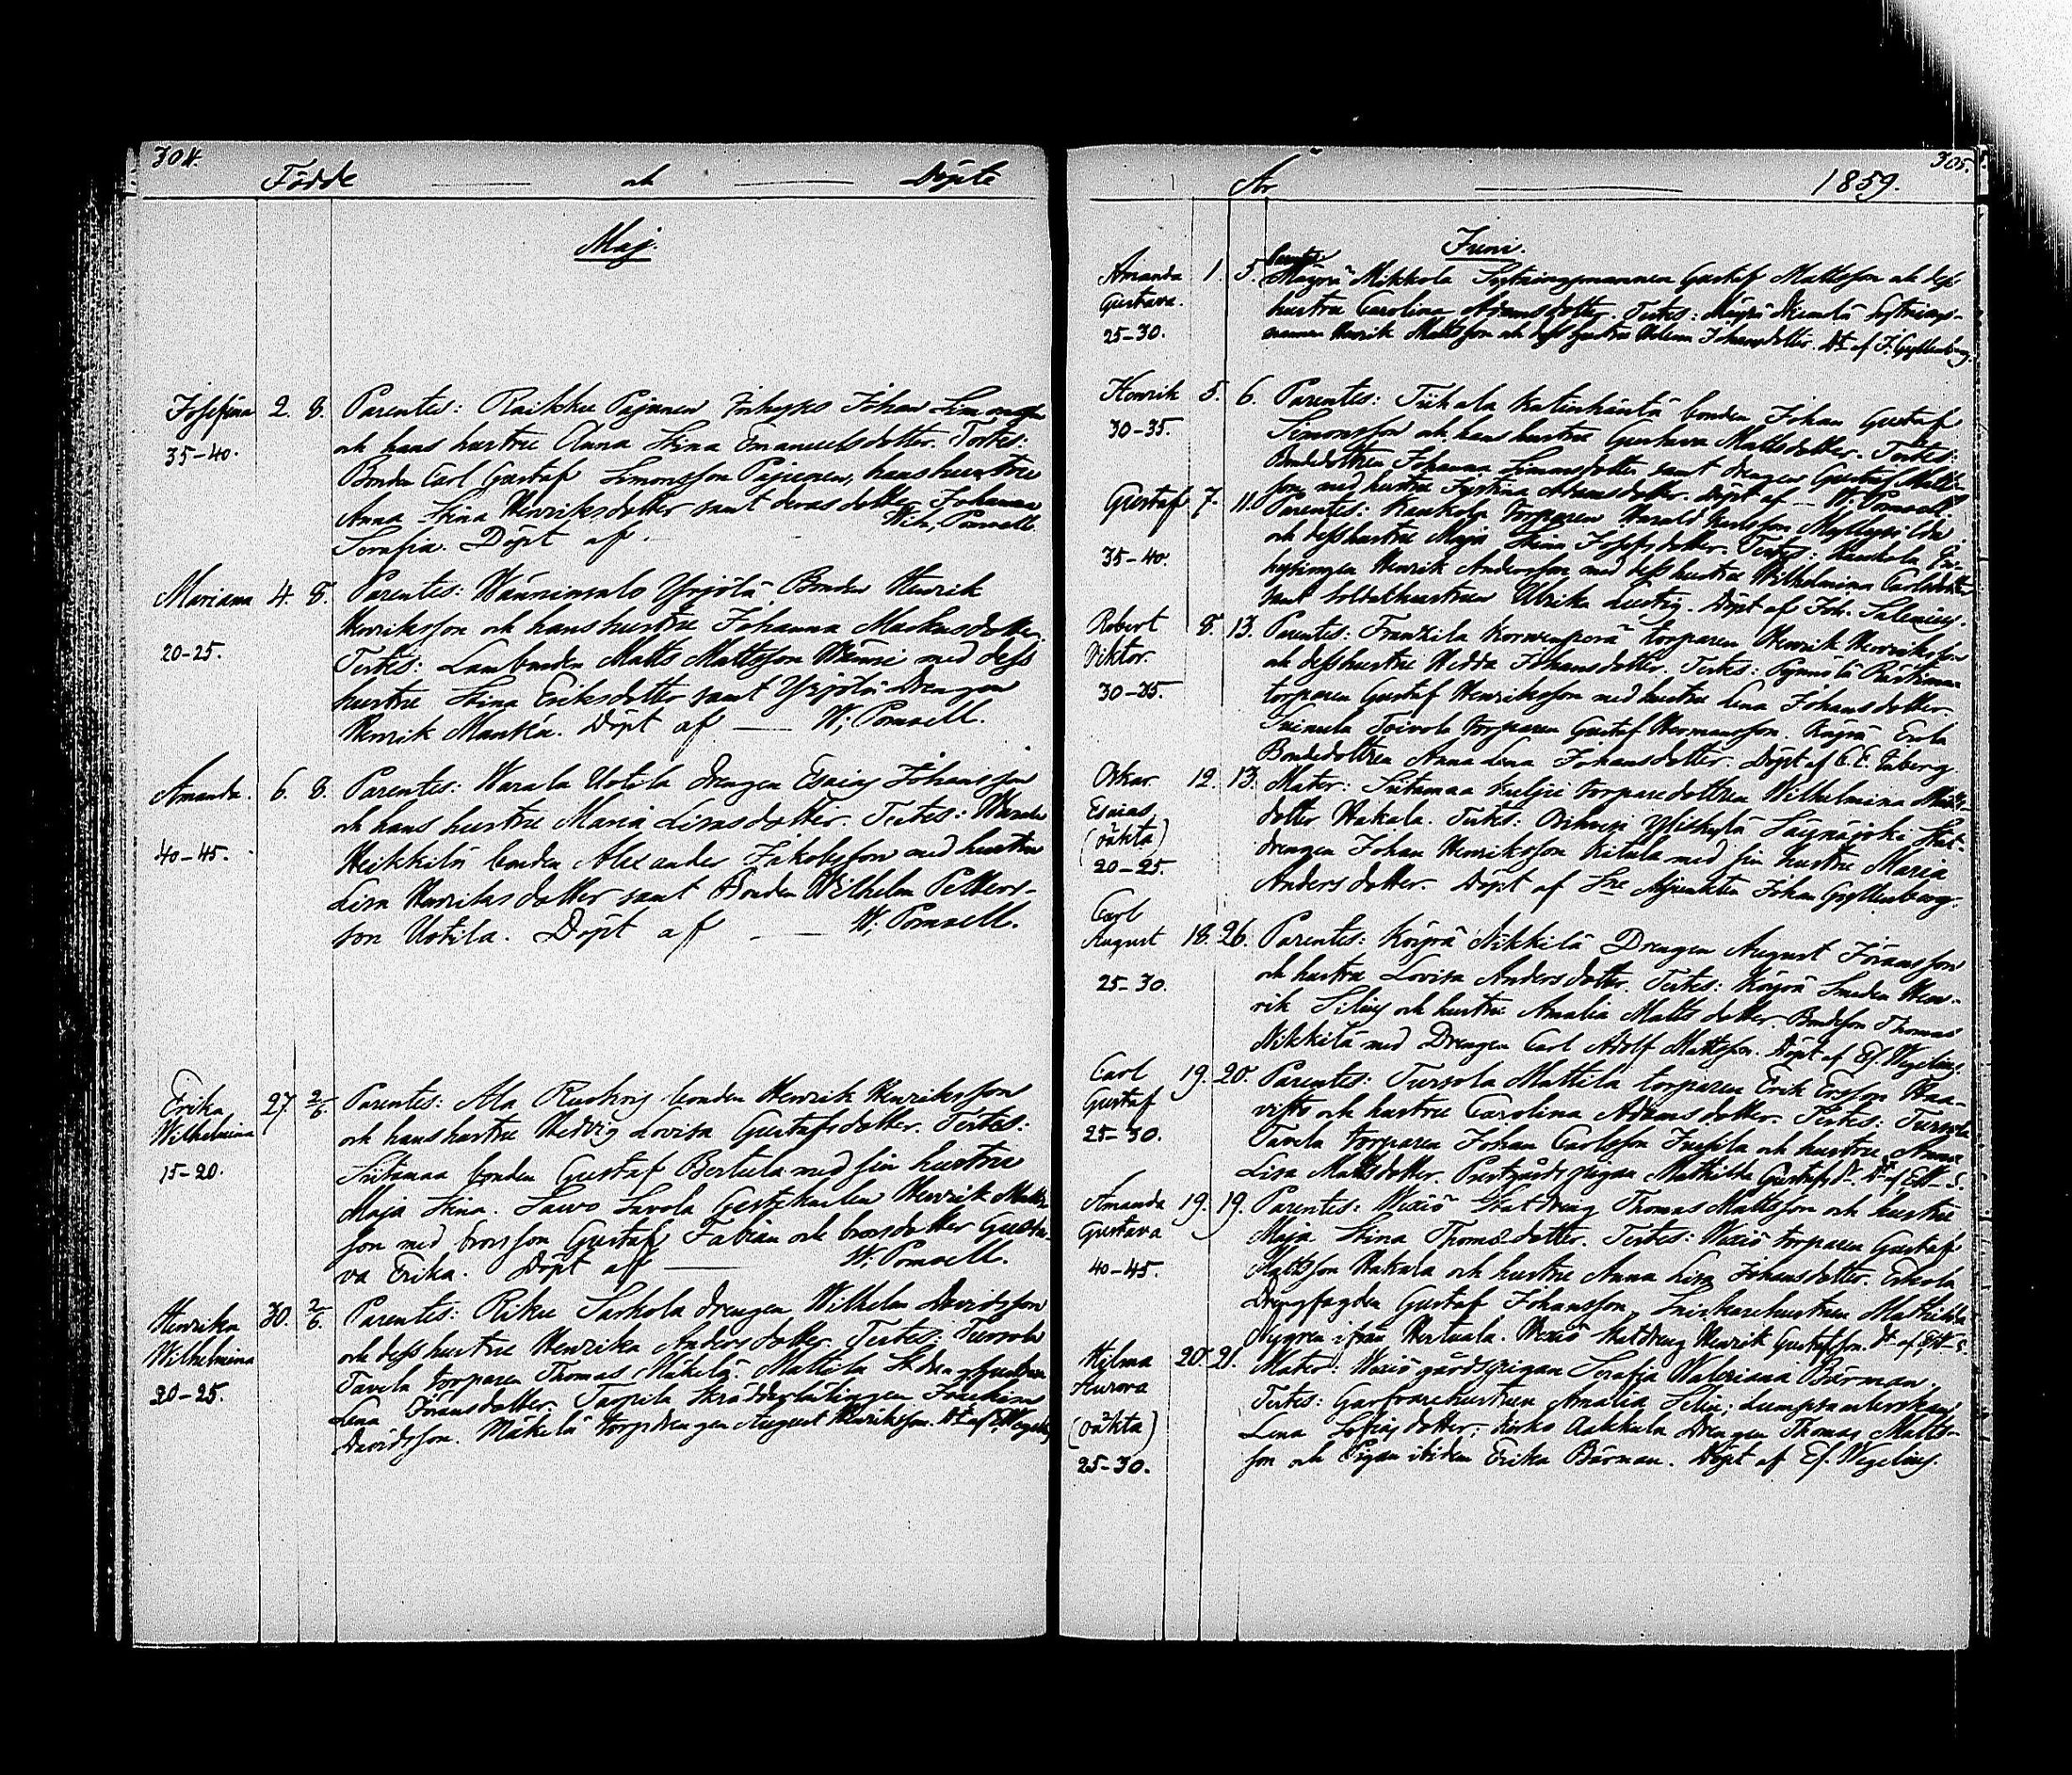 304.
Födde — och — Döpte
Maj.
Josefina 2. 8. Parentes: Raikku Pajunen Johan Simonsson
35-40. och hans hustru Anna Stina Emanuelsdotter. Testes:
Bonden Carl Gustaf Simonsson Pajunen, hans hustru
Anna Stina Henriksdotter samt deras dotter Johanna
Serafia. Döpt af — Wilh. Pomoell.
Mariana 4. 8. Parentes: Wänninsalo Yrjölä Bonden Henrik
Henriksson och hans hustru Johanna Markusdotter.
20-25. Testes: Lambonden Matts Mattsson Wänni med dess
hustru Stina Eriksdotter samt Yrjölä Drengen
Henrik Mankka. Döpt af — W. Pomoell.
Amanda. 6. 8. Parentes: Warala Uotila drengen Esaias Johansson
och hans hustru Maria Lisasdotter. Testes: Warala
40-45. Heikkilä bonden Alexander Jakobsson med hustru
Lisa Henriksdotter samt Bonden Wilhelm Petters-
son Uotila. Döpt af — W. Pomoell.
Erika 27. 2/6. Parentes: Ala Ruohois bonden Henrik Henriksson
Wilhelmina och hans hustru Hedvig Lovisa Gustafsdotter. Testes:
15-20. Sutamaa bonden Gustaf Bertula med sin hustru
Maja Stina. Sawo Savola Gestekarlen Henrik Matts-
son med brorsson Gustaf Fabian och brorsdotter Gusta-
va Erika. Döpt af — W. Pomoell.
Henrika 30. 2/6. Parentes: Riku Sarkola drengen Wilhelm Davidsson
Wilhelmina och dess hustru Henrika Andersdotter. Testes: Tursola
20-25. Tavela torparen Thomas Mäkelä. Mattila
Lena Göransdotter. Tarpila Skräddarlärlingen Joachim
Davidsson. Mäkelä torpdrengen August Henriksson. Dt af Ef. Wegelius
305.
År — 1859.
Juni.
Amanda 1. 5. Parentes: Mäyrä Mikkola Sytningsmannen Gustaf Mattsson och dess
Gustava. hustru Carolina Adamsdotter. Testes: Mäyrä Sytnings-
25-30. mannen Henrik Mattsson och dess hustru Helena Johansdotter. Dt af J. Gyllenberg.
Henrik 5. 6. Parentes: Tiikala Katinhäntä bonden Johan Gustaf
30-35. Simonsson och hans hustru Gustava Mattsdotter. Testes:
Bondedottren Johanna Simonsdotter samt drengen Gustaf Matts-
son med hustru Justina Adamsdotter. Döpt af — W. Pomoell.
Gustaf 7. 11. Parentes: Kaukola torparen Harald Karlsson Myllypeldo
35-40. och dess hustru Maja Stina Josefsdotter. Testes: Kaukola In-
hysingen Henrik Andersson med dess hustru Wilhelmina Carlsdotter
samt Soldathustrun Ulrika Lustig. Döpt af Joh. Salenius.
Robert 8. 13. Parentes: Frankila Korwenperä torparen Henrik Henriksson
Viktor. och dess hustru Hedda Johansdotter. Testes:
30-35. torparen Gustaf Henriksson med hustru Lena Johansdotter.
Toivola torparen Gustaf Hermansson. Köyrä Erola
Bondedottren Anna Lena Johansdotter. Döpt af C. E. Enberg.
Oskar 12. 13. Mater: Sutamaa Kulju torparedottren Wilhelmina Matts-
Esaias dotter Hakala. Testes: Orihvesi Yliskylä Säynäjoki Stat-
(oäkta) drengen Johan Henriksson Kitula med sin hustru Maria
20-25. Andersdotter. Döpt af Sre Adjunkten Johan Gyllenberg.
Carl
August 18. 26. Parentes: Köyrä Nikkilä Drengen August Göransson
25-30. och hustru Lovisa Andersdotter. Testes: Köyrä Smeden Hen-
rik Silius och hustru Amalia Mattsdotter. Bondeson Thomas
Nikkilä med Drengen Carl Adolf Mattsson. Döpt af Ef. Wegelius
Carl 19. 20. Parentes: Tursola Mattila torparen Erik Ersson Haa-
Gustaf visto och hustru Carolina Adamsdotter. Testes: Tursola
25-30. Tavela torparen Johan Carlsson Jussila och hustru Anna
Lisa Mattsdotter. Prestgårds pigan Mathilda Gustafsdr. Dt af
Amanda 19. 19. Parentes: Wexiö Statdreng Thomas Mattsson och hustru
Gustava Maja Stina Thomædotter. Testes: Wexiö torparen Gustaf
40-45. Mattsson Hakala och hustru Anna Lisa Johansdotter. Erkola
Drengfogden Gustaf Johansson, Snickarehustrun Mathilda
Nygren ifrån Hertuala. Wexiö statdreng Henrik Gustafsson. Dt af
Hilma 20. 21. Mater: Wexiö gårdspigan Serafia Waleriana Bärman.
Aurora Testes: Garfvarehustrun Amalia Silin; lumpsamlerskan
(oäkta) Lena Sofiasdotter; Kirko Aakkula Drengen Thomas Matts-
25-30. son och Pigan ibidem Erika Bärman. Döpt af Ef. Wegelius.